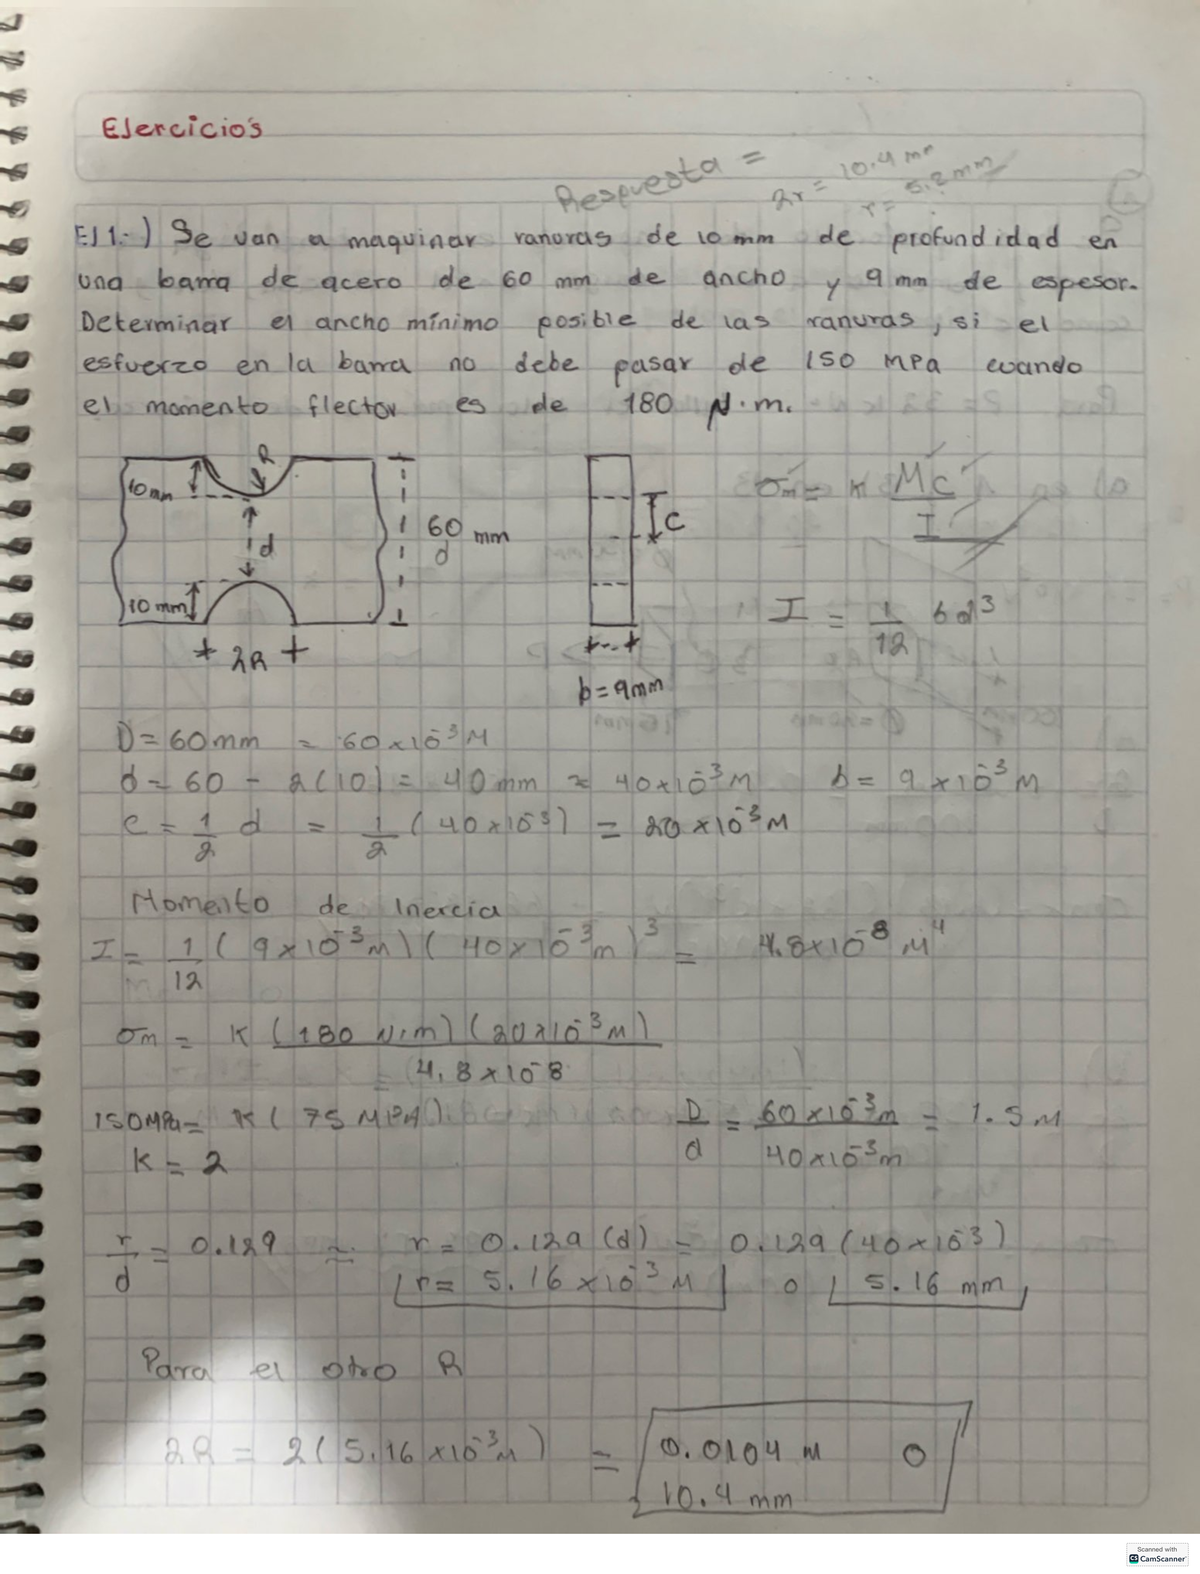 Ejercicio's
Respuesta =
2r = 10.4 mm
r = 5.2 mm
EJ 1.-) Se van a maquinar ranuras de 10 mm de profundidad en
una barra de acero de 60 mm de ancho y 9 mm de espesor.
Determinar el ancho mínimo posible de las ranuras, si el
esfuerzo en la barra no debe pasar de 150 MPa cuando
el momento flector es de 180 N·m.
10mm
R
d
60 mm
d
10 mm
2R
C
b=9mm
σm = K Mc / I
I = 1/12 bd³
D= 60mm = 60x10⁻³ M
d= 60 - 2(10) = 40 mm ≈ 40x10⁻³ M b= 9 x10⁻³ M
C = 1/2 d = 1/2 (40x10⁻³) = 20 x10⁻³ M
Momento de Inercia
I = 1/12 (9x10⁻³ m)(40x10⁻³ m)³ = 4.8x10⁻⁸ M⁴
σm = K (180 N·m)(20x10⁻³ M) / (4.8x10-8
150MPa = K( 75 MPA)
D/d = 60x10⁻³m / 40x10⁻³m = 1.5 M
K = 2
r/d = 0.129 ≈ r= 0.129 (d) = 0.129(40x10⁻³)
r= 5.16x10⁻³ M o 5.16 mm
Para el otro R
2R = 2(5.16x10⁻³ M) = 0.0104 M O
10.4 mm
Scanned with
CS CamScanner